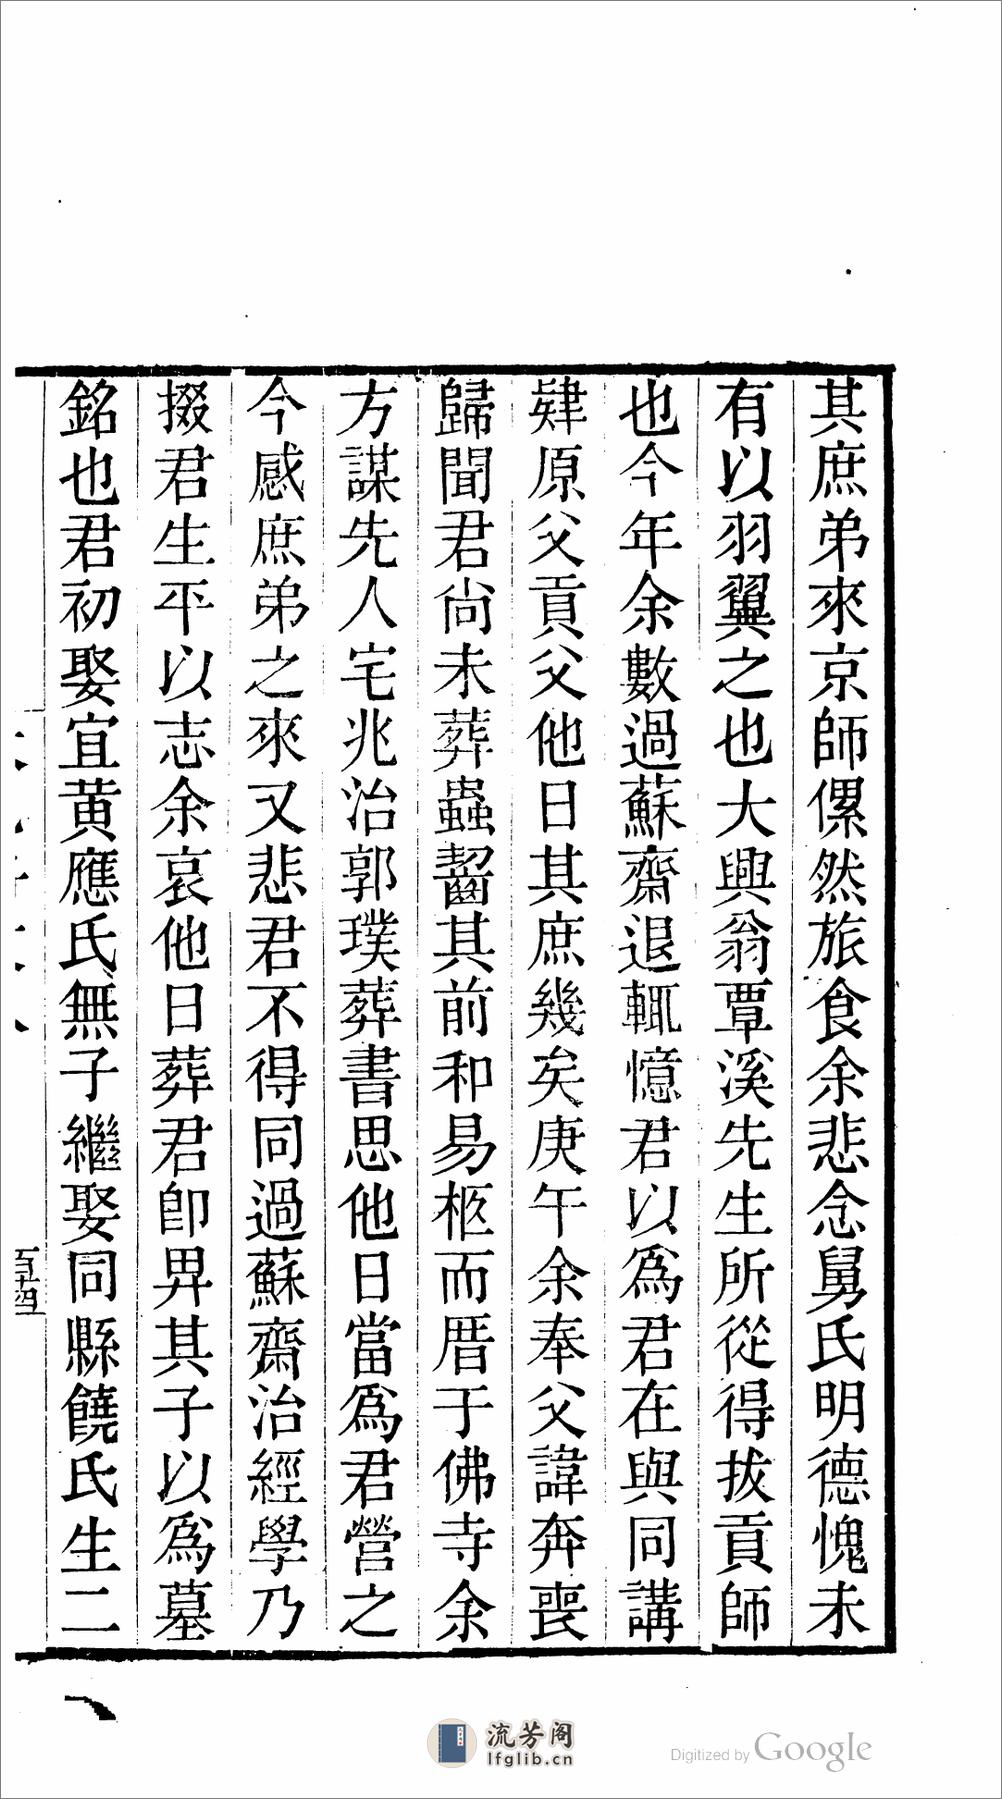 其庶弟來京師傫然旅食余悲念舅氏明德愧未
有以羽翼之也大興翁覃溪先生所從得拔貢師
也今年余數過蘇齋退輒憶君以爲君在與同講
肄原父貢父他日其庶幾矣庚午余奉父諱奔喪
歸聞君尚未葬蟲齧其前和易柩而厝于佛寺余
方謀先人宅兆治郭璞葬書思他日當爲君營之
今感庶弟之來又悲君不得同過蘇齋治經學乃
掇君生平以志余哀他日葬君卽畀其子以爲墓
銘也君初娶宜黄應氏無子繼娶同縣饒氏生二
百十四
流芳阁
lfglib.cn
Digitized by Google